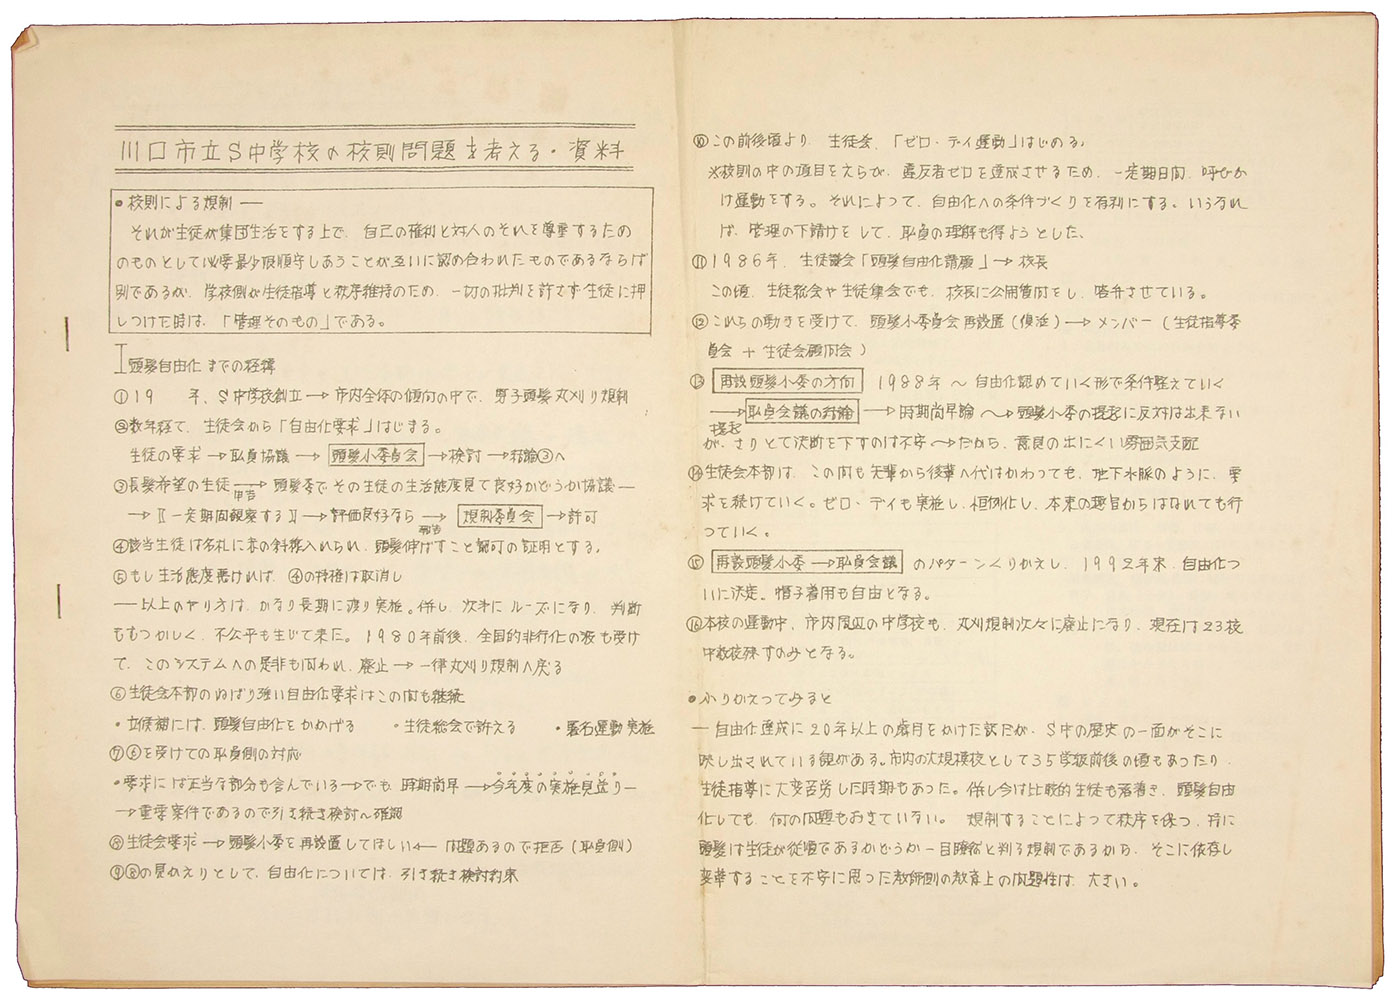 川口市立S中学校の校則問題を考える・資料
●校則による規制 ──
それが生徒が集団生活をする上で、自己の権利と対人のそれを尊重するため
のものとして必要最少限順守しあうことが互いに認め合われたものであるならば
別であるが、学校側が生徒指導と秩序維持のため、一切の批判を許さず生徒に押
しつけた時は、「管理そのもの」である。
I 頭髪自由化までの経緯
①19　　年、S中学校創立→市内全体の傾向の中で、男子頭髪丸刈り規制
②数年経て、生徒会から「自由化要求」はじまる。
生徒の要求→職員協議→頭髪小委員会→検討→結論③へ
③長髪希望の生徒→頭髪委でその生徒の生活態度見て良好かどうか協議─
申告
→〖一定期間観察する〗→評価良好なら→規制委員会→許可
報告
④該当生徒は名札に赤の斜線入れられ、頭髪伸ばすこと許可の証明とする。
⑤もし生活態度悪ければ、④の特権は取消し
──以上のやり方は、かなり長期に渡り実施。併し、次第にルーズになり、判断
もむつかしく、不公平も生じて来た。1980年前後、全国的非行化の波も受け
て、このシステムへの是非も問われ、廃止→一律丸刈り規制へ戻る
⑥生徒会本部のねばり強い自由化要求はこの間も継続
・立候補には、頭髪自由化をかかげる　・生徒総会で訴える　・署名運動実施
⑦⑥を受けての職員側の対応
・要求には正当な部分も含んでいる→でも、時期尚早→今年度の実施見送り─
→重要案件であるので引き続き検討へ確認
⑧生徒会要求→頭髪小委を再設置してほしい←問題あるので拒否（職員側）
⑨⑧の見かえりとして、自由化については、引き続き検討約束
⑩この前後頃より、生徒会、「ゼロ・デイ運動」はじめる。
※校則の中の項目をえらび、違反者ゼロを達成させるため、一定期日間、呼びか
け運動をする。それによって、自由化への条件づくりを有利にする。いうなれ
ば、管理の下請けをして、職員の理解も得ようとした。
⑪1986年、生徒議会「頭髪自由化請願」→校長
この頃、生徒総会や生徒集会でも、校長に公開質問をし、答弁させている。
⑫これらの動きを受けて、頭髪小委員会再設置（復活）→メンバー（生徒指導委
員会＋生徒会顧問会）
⑬再設頭髪小委の方向　1988年～自由化認めていく形で条件整えていく
→職員会議の討論→時期尚早論～→頭髪小委の提起に反対は出来ない
提起
が、さりとて決断を下すのは不安～→だから、意見の出にくい雰囲気支配
⑭生徒会本部は、この間も先輩から後輩へ代はかわっても、地下水脈のように、要
求を続けていく。ゼロ・デイも実施し、恒例化し、本来の趣旨からはなれても行
っていく。
⑮再設頭髪小委→職員会議のパターンくりかえし、1992年末、自由化つ
いに決定。帽子着用も自由となる。
⑯本校の運動中、市内周辺の中学校も、丸刈規制次々に廃止になり、現在は23校
中数校残すのみとなる。
●ふりかえってみると
─自由化達成に20年以上の歳月をかけた訳だが、S中の歴史の一面がそこに
映し出されている観がある。市内の大規模校として35学級前後の頃もあったり、
生徒指導に大変苦労した時期もあった。併し今は比較的生徒も落着き、頭髪自由
化しても、何の問題もおきていない。　規制することによって秩序を保つ、特に
頭髪は生徒が従順であるかどうか一目瞭然と判る規制であるから、そこに依存し
変革することを不安に思った教師側の教育上の問題性は、大きい。